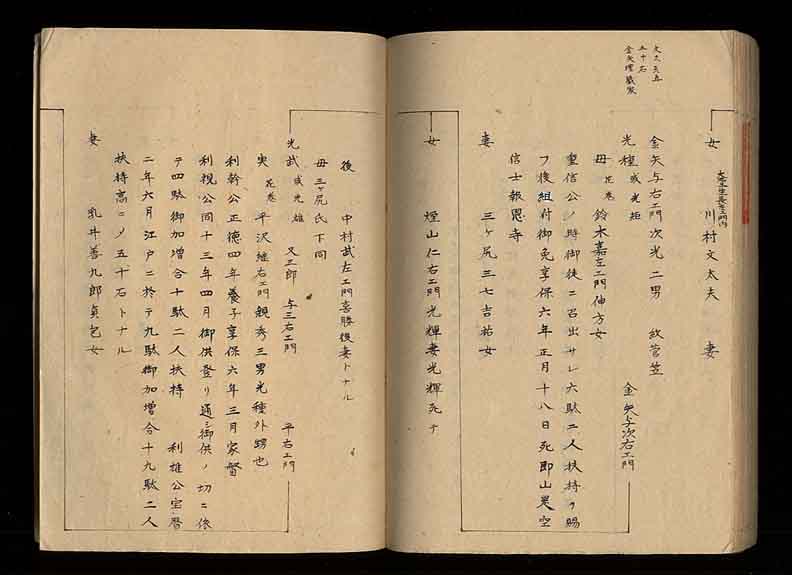 文久支五
五十石
金矢環蔵家
女 川村文太夫 妻
金矢与右エ門次光二男 紋菅笠 金矢与次右エ門
光種 或光矩
母 花巻 鈴木嘉左エ門伸方女
重信公ノ時御徒ニ召出サレ六駄二人扶持ヲ賜
フ後組付御免享保六年正月十八日死即山畏空
信士報恩寺
妻 三ヶ尻三七吉祐女
女 煙山仁右エ門光輝妻光輝死テ
後 中村武左エ門喜勝後妻トナル
母三ヶ尻氏下同
光武 或光雄 又三郎 与三右エ門 平右エ門
実 花巻 平沢継右エ門親秀三男光種外甥也
利幹公正徳四年養子享保六年三月家督
利視公同十三年四月御供登リ通シ御供ノ切ニ依
テ四駄御加増合十駄二人扶持 利雄公宝暦
二年六月江戸ニ於テ九駄御加増合十九駄二人
扶持高ニノ五十石トナル
妻 乳井善九郎貞包女